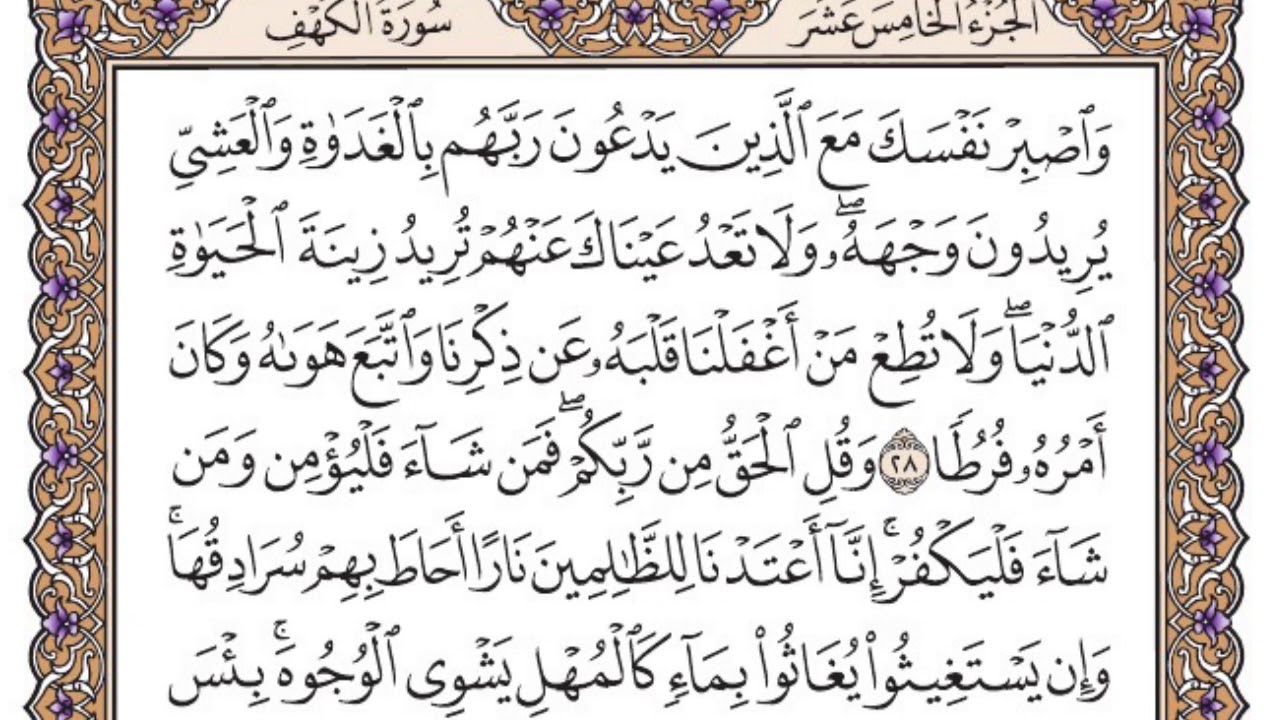 الجُزْءُ الخَامِسَ عَشَرَ سُورَةُ الكَهْفِ
وَٱصْبِرْ نَفْسَكَ مَعَ ٱلَّذِينَ يَدْعُونَ رَبَّهُم بِٱلْغَدَوٰةِ وَٱلْعَشِىِّ
يُرِيدُونَ وَجْهَهُۥۖ وَلَا تَعْدُ عَيْنَاكَ عَنْهُمْ تُرِيدُ زِينَةَ ٱلْحَيَوٰةِ
ٱلدُّنْيَاۖ وَلَا تُطِعْ مَنْ أَغْفَلْنَا قَلْبَهُۥ عَن ذِكْرِنَا وَٱتَّبَعَ هَوَىٰهُ وَكَانَ
أَمْرُهُۥ فُرُطًا ٢٨ وَقُلِ ٱلْحَقُّ مِن رَّبِّكُمْۖ فَمَن شَآءَ فَلْيُؤْمِن وَمَن
شَآءَ فَلْيَكْفُرْۚ إِنَّآ أَعْتَدْنَا لِلظَّٰلِمِينَ نَارًا أَحَاطَ بِهِمْ سُرَادِقُهَاۚ
وَإِن يَسْتَغِيثُوا۟ يُغَاثُوا۟ بِمَآءٍ كَٱلْمُهْلِ يَشْوِى ٱلْوُجُوهَۚ بِئْسَ